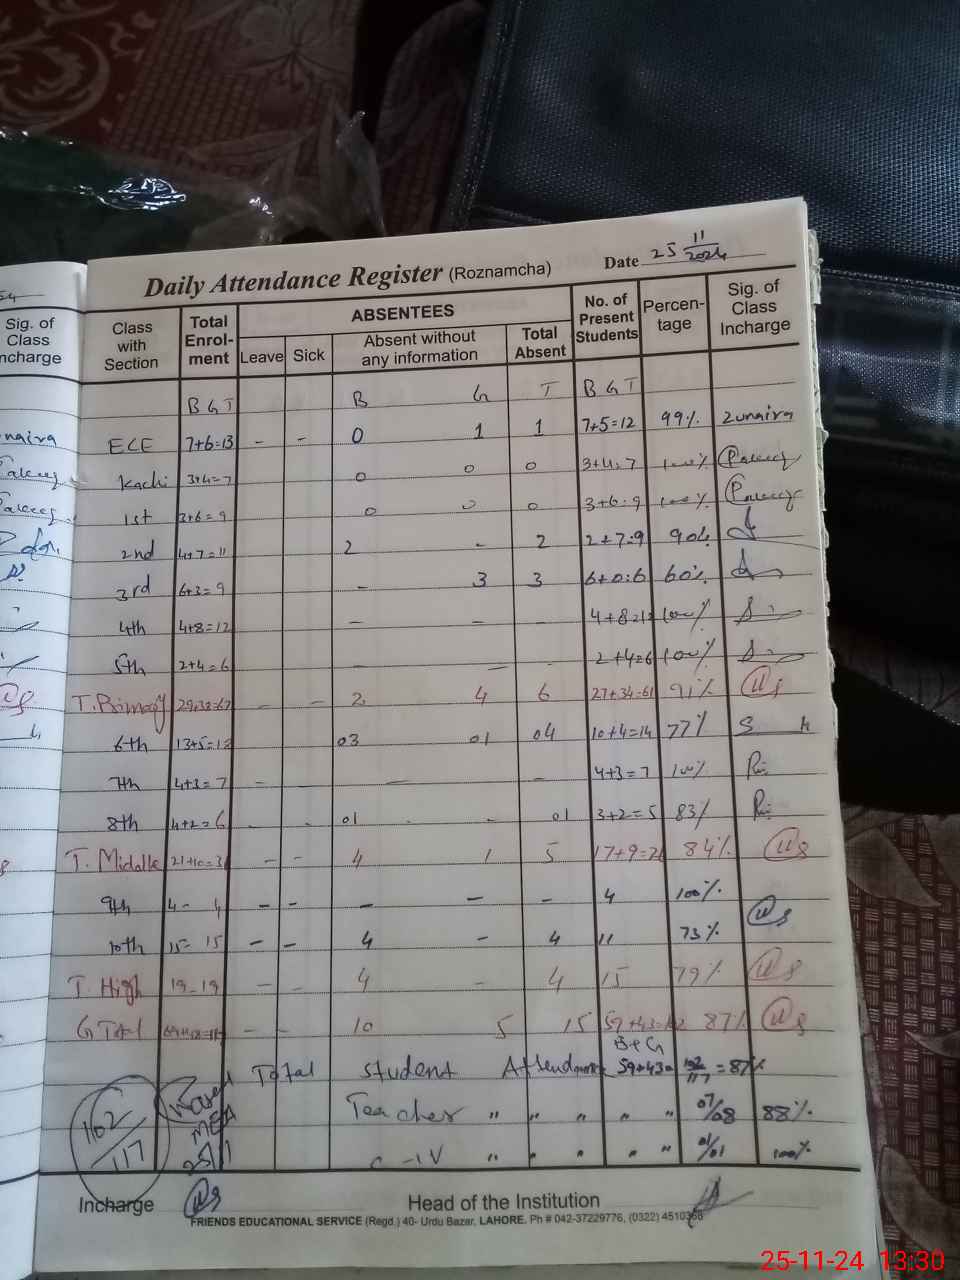 Daily Attendance Register (Roznamcha) Date 25 11/2024
Sig. of Class Incharge
Class with Section Total Enrol-ment ABSENTEES No. of Present Students Percen-tage Sig. of Class Incharge
Leave Sick Absent without any information Total Absent
B G T B G T B G T
ECE 7+6=13 - - 0 1 1 7+5=12 99% Zunaira
Kachi 3+4=7 0 0 0 3+4=7 100%
1st 3+6=9 0 0 0 3+6=9 100%
2nd 4+7=11 2 - 2 2+7=9 90%
3rd 6+3=9 - 3 3 6+0=6 60%
4th 4+8=12 - - - 4+8=12 100%
5th 2+4=6 - - 2+4=6 100%
T. Primary 29+38=67 - - 2 4 6 27+34=61 91%
6th 13+5=18 03 01 04 10+4=14 77%
7th 4+3=7 - - - 4+3=7 100%
8th 4+2=6 - - 01 - - 01 3+2=5 83%
T. Middle 21+10=31 - - 4 1 5 17+9=26 84%
9th 4 - 4 - - - - - 4 100%
10th 15- 15 - - 4 - 4 11 73%
T. High 19-19 - - 4 - 4 15 79%
G Total - - 10 5 15 59+43=102 87%
B+G
Total Student Attendance 59+43= 102/117 = 87%
Teacher " " " " " 07/08 88%
C-IV " " " " " 01/01 100%
102/117
MEA
25/11
Incharge Head of the Institution
FRIENDS EDUCATIONAL SERVICE (Regd.) 40- Urdu Bazar, LAHORE. Ph # 042-37229776, (0322) 4510368
25-11-24 13:30